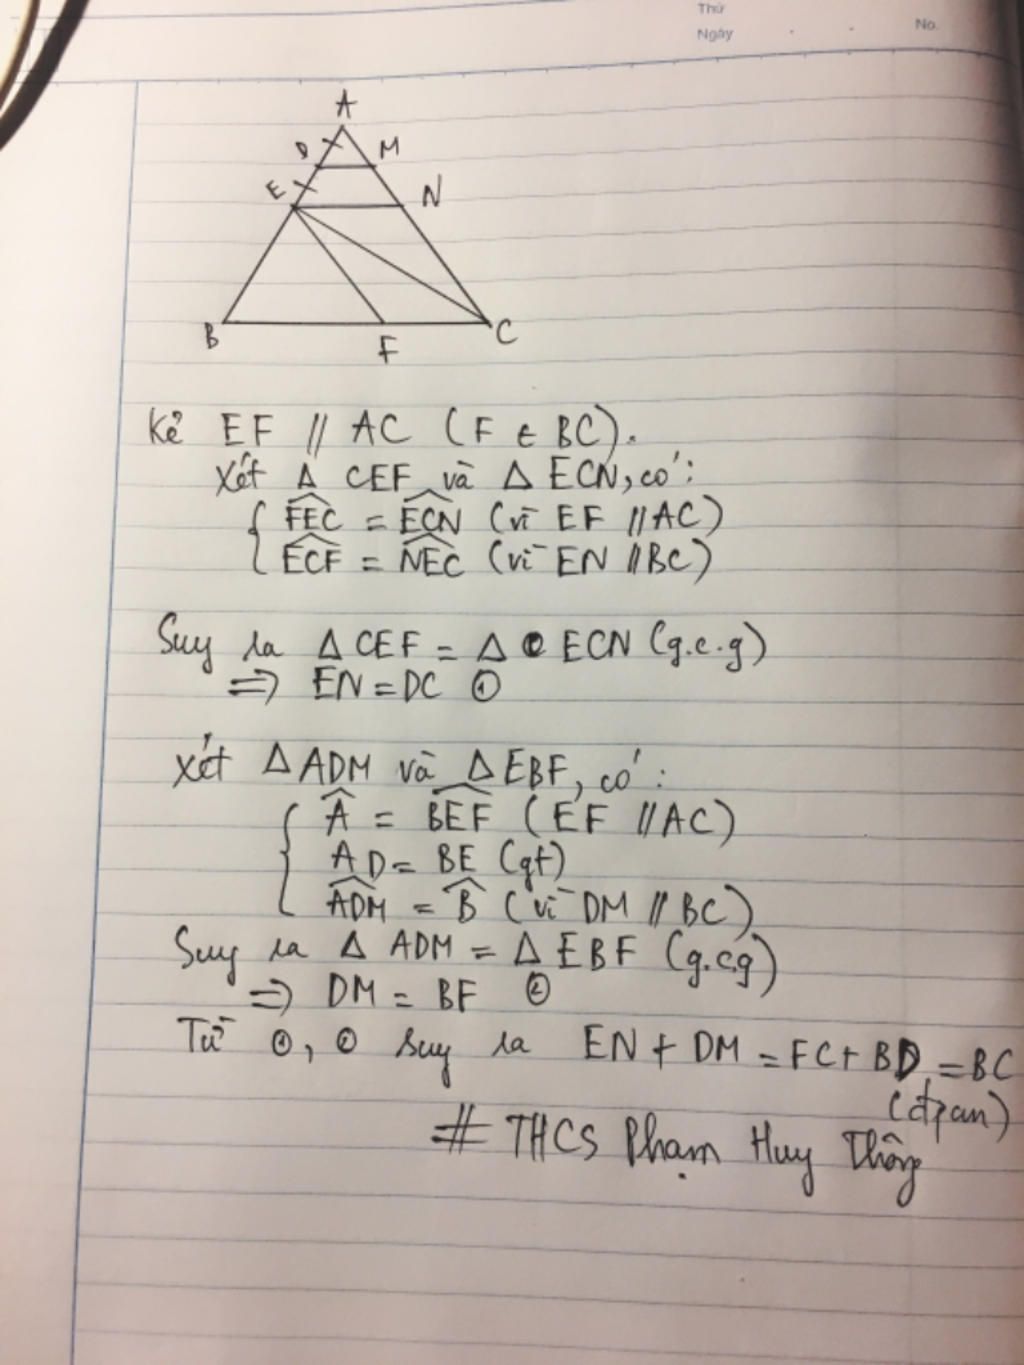 Thứ
Ngày
No.
A
D
M
E
N
B
F
C
Kẻ EF // AC (F ∈ BC).
Xét Δ CEF và Δ ECN, có:
{ FEC = ECN (vì EF // AC)
ECF = NEC (vì EN // BC)
Suy ra Δ CEF = Δ ECN (g.c.g)
⇒ EN = DC ①
Xét Δ ADM và Δ EBF, có:
{ Â = BEF (EF // AC)
AD = BE (gt)
ADM = B̂ (vì DM // BC)
Suy ra Δ ADM = Δ EBF (g.c.g)
⇒ DM = BF ②
Từ ①, ② suy ra EN + DM = FC + BD = BC
(đpcm)
# THCS Phạm Huy Thông